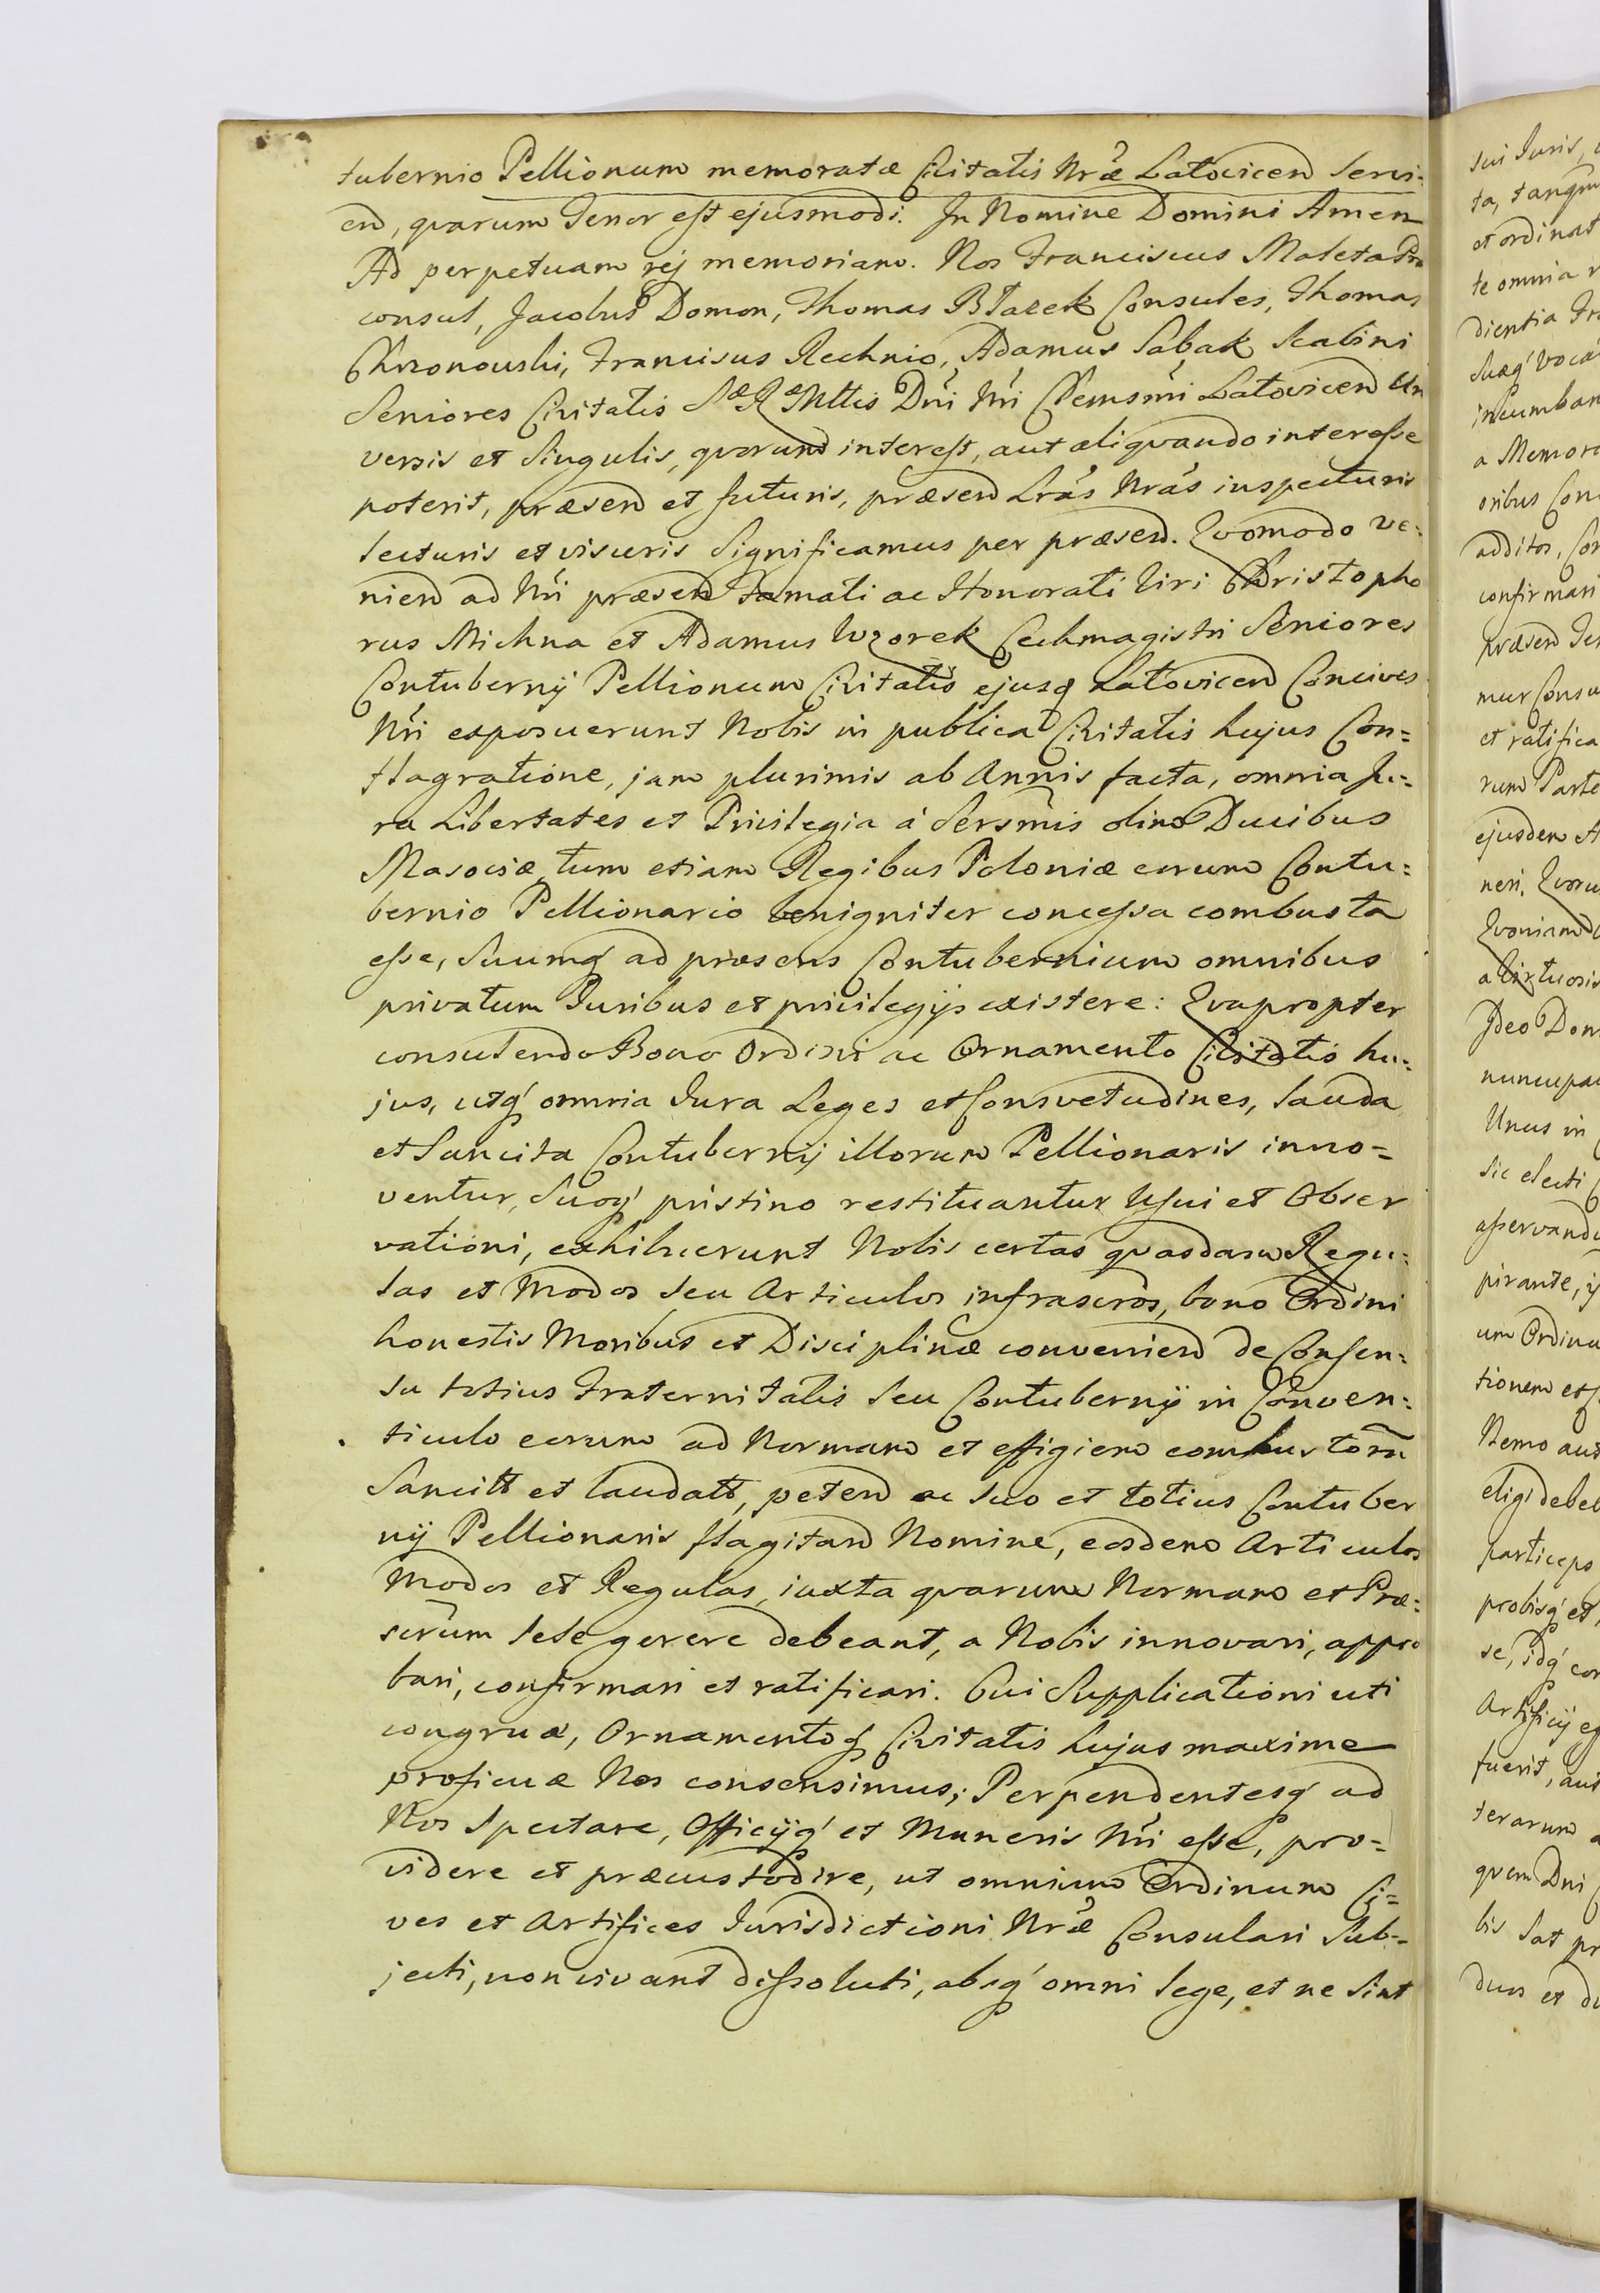 tubernio Pellionum memoratæ Civitatis Nræ Latovicen Servi-
en, qvarum Tenor est ejusmodi. In Nomine Domini Amen
Ad perpetuam rej memoriam. Nos Franciscus Maleta Pro
consul, Jacobus Domon, Thomas Błazek Consules, Thomas
Chrzonowski, Franciscus Rechnio, Adamus Sabak Scabini
Seniores Civitatis Sæ Ræ Mttis Dni Nri Clemsmi Latovicen Un
versis et Singulis, qvorum interest, aut aliqvando interesse
poterit, præsen et futuris, præsen Lras Nras inspecturis
lecturis et visuris Significamus per præsen. Qvomodo ve-
nien ad Nri præsen famati ac Honorati Viri Christopho
rus Michna et Adamus Wzorek Cechmagistri Seniores
Contubernij Pellionum Civitatis ejusq Latovicen Concives
Nri exposuerunt Nobis in publica Civitatis hujus Con=
flagratione, jam plurimis ab Annis facta, omnia Ju=
ra Libertates et Privilegia á Sersmis olim Ducibus
Masoviæ, tum etiam Regibus Poloniæ eorum Contu=
bernio Pellionario benigniter concessa combusta
esse, Suumq ad præsens Contubernium omnibus
privatum Juribus et privilegijs existere: Qvapropter
consulendo Bono Ordini ac Ornamento Civitatis hu=
jus, utq omnia Jura Leges et Consvetudines, lauda
et Sancita Contubernij illorum Pellionaris inno=
ventur, Suoq pristino restituantur Usui et Obser
vationi, exhibuerunt Nobis certas qvasdam Regu=
las et Modos seu Articulos infrascros, bono Ordini
honestis Moribus et Disciplinæ convenien de Consen=
su totius Fraternitatis seu Contubernij in Conven=
ticulo eorum ad Normam et effigiem combustoru
Sancitt et laudatt, peten ac suo et totius Contuber
nij Pellionaris flagitan Nomine, eosdem Articulos
Modos et Regulas, iuxta qvarum Normam et Præ=
scrum sese gerere debeant, a Nobis innovari, appro
bari, confirmari et ratificari. Cui Supplicationi uti
congruæ, Ornamentoq Civitatis hujus maxime
proficuæ Nos consensimus; Perpendentesq ad
Nos Spectare, Officijq et Muneris Nri esse, pro=
videre et præcustodire, ut omnium Ordinum Ci=
ves et Artifices Jurisdictioni Nræ Consulari Sub=
jecti, non vivant dissoluti, absq omni lege, et ne Sint